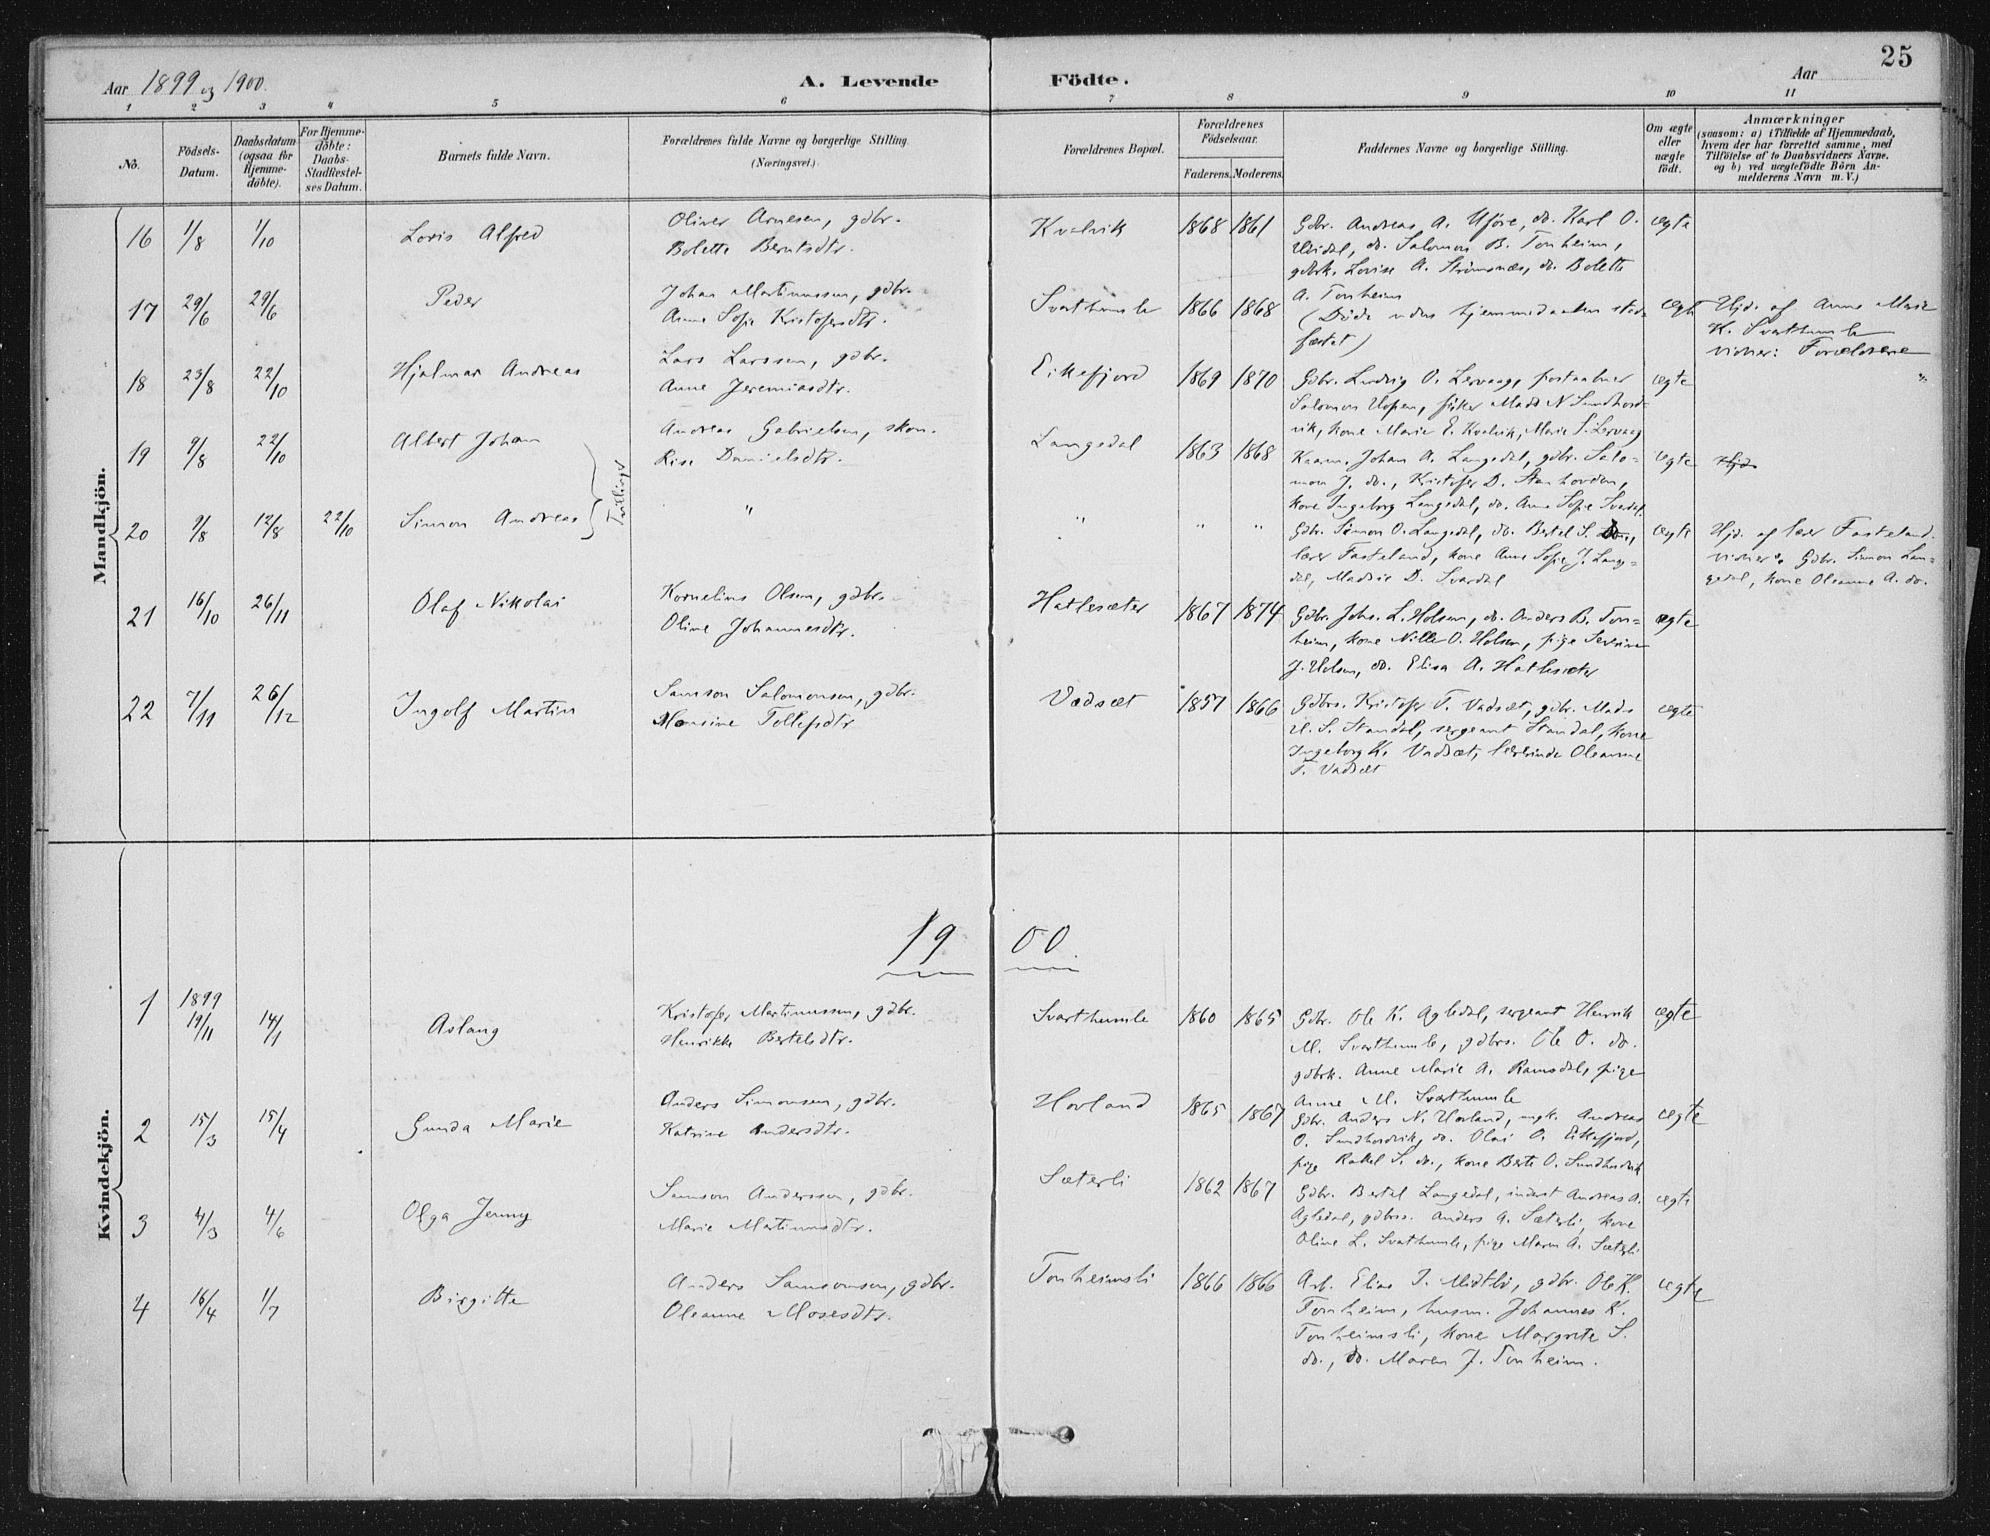 Aar 1899 og 1900.
A. Levende Födte.
Aar
25
1 2 3 4 5 6 7 8 9 10 11
No.
Födsels-
Datum.
Daabsdatum
(ogsaa for
Hjemme-
döbte).
For Hjemme-
döbte:
Daabs-
Stadfæstel-
ses Datum.
Barnets fulde Navn.
Forældrenes fulde Navne og borgerlige Stilling.
(Næringsvei.)
Forældrenes Bopæl.
Forældrenes
Födselsaar.
Faderens. Moderens.
Faddernes Navne og borgerlige Stilling.
Om ægte
eller
uægte
födt.
Anmærkninger
(saasom: a) i Tilfælde af Hjemmedaab,
hvem der har forrettet samme, med
Tilföielse af to Daabsvidners Navne,
og b) ved uægtefödte Börn An-
melderens Navn m. V.)
Mandkjön.
16 1/8 1/10 Lovis Alfred
Oliver Arnesen, gdbr.
Bolette Berntsdtr.
Kvalvik 1868 1861
Gdbr. Andreas A. Uføre, do. Karl O.
do. Salomon B. Tonheim,
gdbrk. Lovise A. Strömsnæs, do. Bolette
A. Tonheim
ægte
17 29/6 29/6 Peder
Johan Martinussen, gdbr.
Anne Sofie Kristofersdtr.
Svarthumle 1866 1868
(Döde uden hjemmedaaben stad-
fæstet)
ægte
Hjd. af Anne Marie
K. Svarthumle
vidner: Forældrene
18 23/8 22/10 Hjalmar Andreas
Lars Larssen, gdbr.
Anne Jeremiasdtr.
Eikefjord 1869 1870
Gdbr. Ludvig O. Lervaag, postaabner
Salomon Hopen, fisker Mads N Sundhord-
vik, kone Marie E. Kvalvik, Marie S. Lervaag
ægte "
19 9/8 22/10 Albert Johan
Andreas Gabrielsen, skom.
Rise Danielsdtr.
Langedal 1863 1868
Johan A. Langedal, gdbr. Salo-
mon J. do., Kristofer D. Stanhovden,
kone Ingeborg Langedal, do. Anne Sofie Svardal
ægte Hjd.
Tvillinger
20 9/8 12/8 22/10 Simon Andreas
" " " "
Gdbr. Simon O. Langedal, do. Bertel S. do.,
lærer Fasteland, kone Anne Sofie J. Lange-
dal, Madsie D. Svardal
ægte
Hjd. af lærer Fasteland.
vidner: Gdbr. Simon Lan-
gedal, kone Oleanne A. do.
21 16/10 26/11 Olaf Nikolai
Kornelius Olsen, gdbr.
Oline Johannesdtr.
Hatlesæter 1867 1874
Gdbr. Johs. L. Holsen, do. Anders B. Ton-
heim, kone Nille O. Holsen, pige Severine
J. Holsen, do. Elisa A. Hatlesæter
ægte
22 7/11 26/12 Ingolf Martin
Samson Salomonsen, gdbr.
Monsine Tollefsdtr
Vadsæt 1857 1866
Gdbrs. Kristofer T. Vadsæt, gdbr. Mads
S. Standal, sergeant Standal, kone
Ingeborg K. Vadsæt, lærerinde Oleanne
T. Vadsæt
ægte
19 00.
Kvindekjön.
1 1899
19/11 14/1 Aslaug
Kristofer Martinussen, gdbr.
Henrikke Bertelsdtr.
Svarthumle 1860 1865
Gdbr. Ole K. Agledal, sergeant Henrik
M. Svarthumle, gdbrs. Ole O. do.
gdbrk. Anne Marie A. Ramsdal, pige
Anne M. Svarthumle
ægte
2 15/3 15/4 Gunda Marie
Anders Simonsen, gdbr.
Katrine Andersdtr.
Hovland 1865 1867
Gdbr. Anders N. Hovland, ungk. Andreas
O. Sundhordvik, do. Olai O. Eikefjord,
pige Rakel S. do., kone Berte O. Sundhordvik
ægte
3 4/3 4/6 Olga Jenny
Samson Anderssen, gdbr.
Marie Martinusdtr.
Sæterli 1862 1867
Gdbr. Bertel Langedal, inderst Andreas A.
Agledal, gdbrs. Anders A. Sæterli, kone
Oline L. Svarthumle, pige Maren A. Sæterli
ægte
4 16/4 1/7 Birgitte
Anders Samsonsen, gdbr.
Oleanne Mosesdtr.
Tonheimsli 1866 1866
Arb. Elias I. Midtbö, gdbr. Ole K.
Tonheim, husm. Johannes K.
Tonheimsli, kone Margrete S.
do., do. Maren J. Tonheim.
ægte